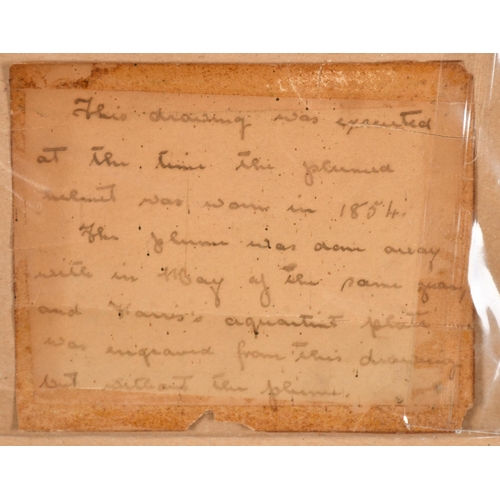 This drawing was executed
at the time the plumed
helmet was worn in 1854.
The plume was done away
with in May of the same year,
and Harris's aquatint plate
was engraved from this drawing,
but without the plume.